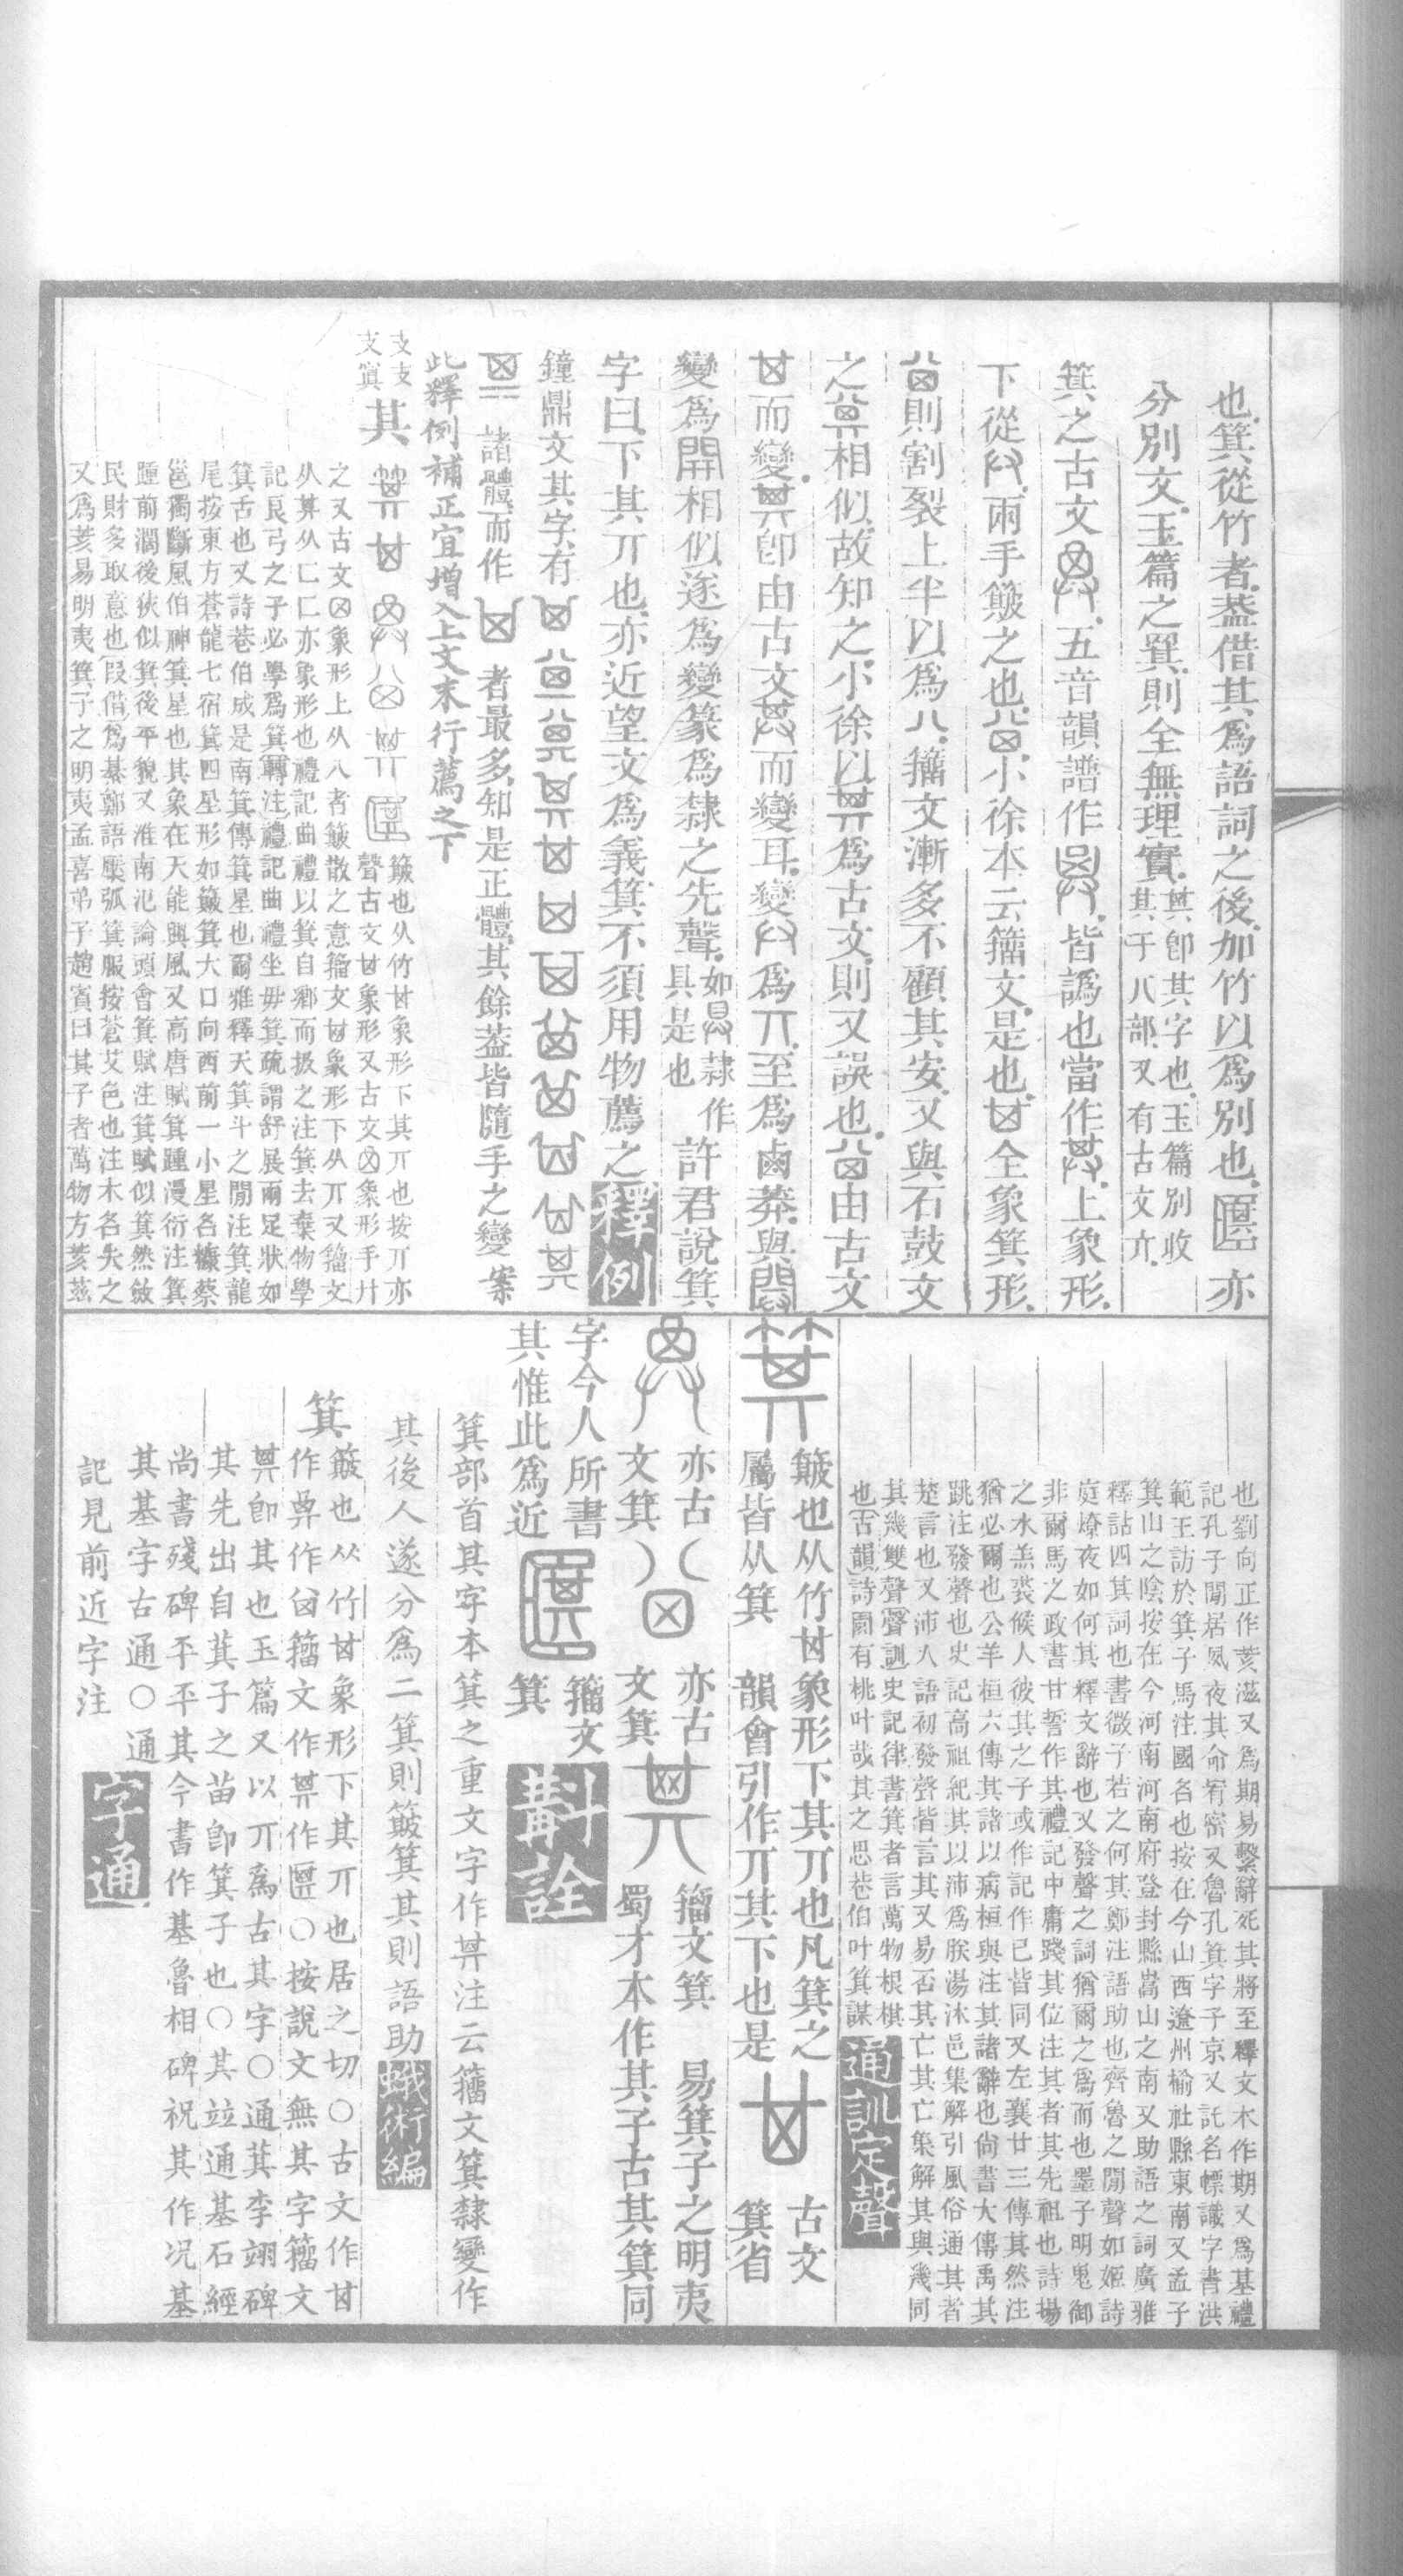 也箕從竹者葢借其爲語詞之後加竹以爲別也亦
分別文玉篇之䈎則全無理實其卽其字也玉篇別收其于八部又有古文亣
箕之古文五音韻譜作皆譌也當作上象形
下從兩手簸之也小徐本云籀文是也𠀠全象箕形
則割裂上半以爲八籀文漸多不顧其安又與石鼓文
之相似故知之小徐以爲古文則又誤也由古文
𠀠而變卽由古文而變耳變爲丌至爲鹵莽與
變爲開相似遂爲變篆爲隸之先聲如隸作具是也許君說箕
字曰下其丌也亦近望文爲義箕不須用物薦之釋例
鐘鼎文其字有
諸體而作者最多知是正體其餘葢皆隨手之變 案
此釋例補正宜增入上文末行薦之下
支支
支寘
其
簸也从竹𠀠象形下其丌也按丌亦
聲古文𠀠象形又古文象形手廾
之又古文象形上从八者簸散之意籀文象形下从丌又籀文
从其从匚匚亦象形也禮記曲禮以箕自鄉而扱之注箕去棄物學
記良弓之子必學爲箕轉注禮記曲禮坐毋箕疏謂舒展兩足狀如
箕舌也又詩巷伯成是南箕傳箕星也爾雅釋天箕斗之閒注箕龍
尾按東方蒼龍七宿箕四星形如簸箕大口向西前一小星名糠蔡
邕獨斷風伯神箕星也其象在天能興風又高唐賦箕踵漫衍注箕
踵前濶後狹似箕後平貌又淮南氾論頭會箕賦注箕賦似箕然斂
民財多取意也假借爲萁鄭語檿弧箕服按蒼艾色也注木名失之
又爲荄易明夷箕子之明夷孟喜弟子趙賓曰其子者萬物方荄茲
也劉向正作荄滋又爲期易繫辭死其將至釋文本作期又爲基禮
記孔子閒居夙夜其命宥密又魯孔箕字子京又託名幖識字書洪
範王訪於箕子馬注國名也按在今山西遼州榆社縣東南又孟子
箕山之陰按在今河南河南府登封縣嵩山之南又助語之詞廣雅
釋詁四其詞也書微子若之何其鄭注語助也齊魯之閒聲如姬詩
庭燎夜如何其釋文辭也又發聲之詞猶爾之爲而也墨子明鬼御
非爾馬之政書甘誓作其禮記中庸踐其位注其者其先祖也詩揚
之水羔裘候人彼其之子或作記作己皆同又左襄廿三傳其然注
猶必爾也公羊桓六傳其諸以病桓與注其諸辭也尚書大傳禹其
跳注發聲也史記高祖紀其以沛爲朕湯沐邑集解引風俗通其者
楚言也又沛人語初發聲皆言其又易否其亡其亡集解其與幾同
其幾雙聲聲訓史記律書箕者言萬物根棋
也古韻詩園有桃叶哉其之思巷伯叶箕謀
通訓定聲
簸也从竹𠀠象形下其丌也凡箕之
屬皆从箕 韻會引作丌其下也是
古文
箕省
亦古
文箕
亦古
文箕
籀文箕 易箕子之明夷
蜀才本作其子古其箕同
字今人所書
其惟此爲近
籀文
箕
斠詮
箕部首其字本箕之重文字作其注云籀文箕隸變作
其後人遂分爲二箕則簸箕其則語助 蛾術編
箕
簸也从竹𠀠象形下其丌也居之切〇古文作𠀠
作作籀文作作〇按說文無其字籀文
卽其也玉篇又以丌爲古其字〇通萁李翊碑
其先出自萁子之苗卽箕子也〇其竝通基石經
尚書殘碑丕丕其今書作基魯相碑祝其作况基
其基字古通〇通
記見前近字注
字通